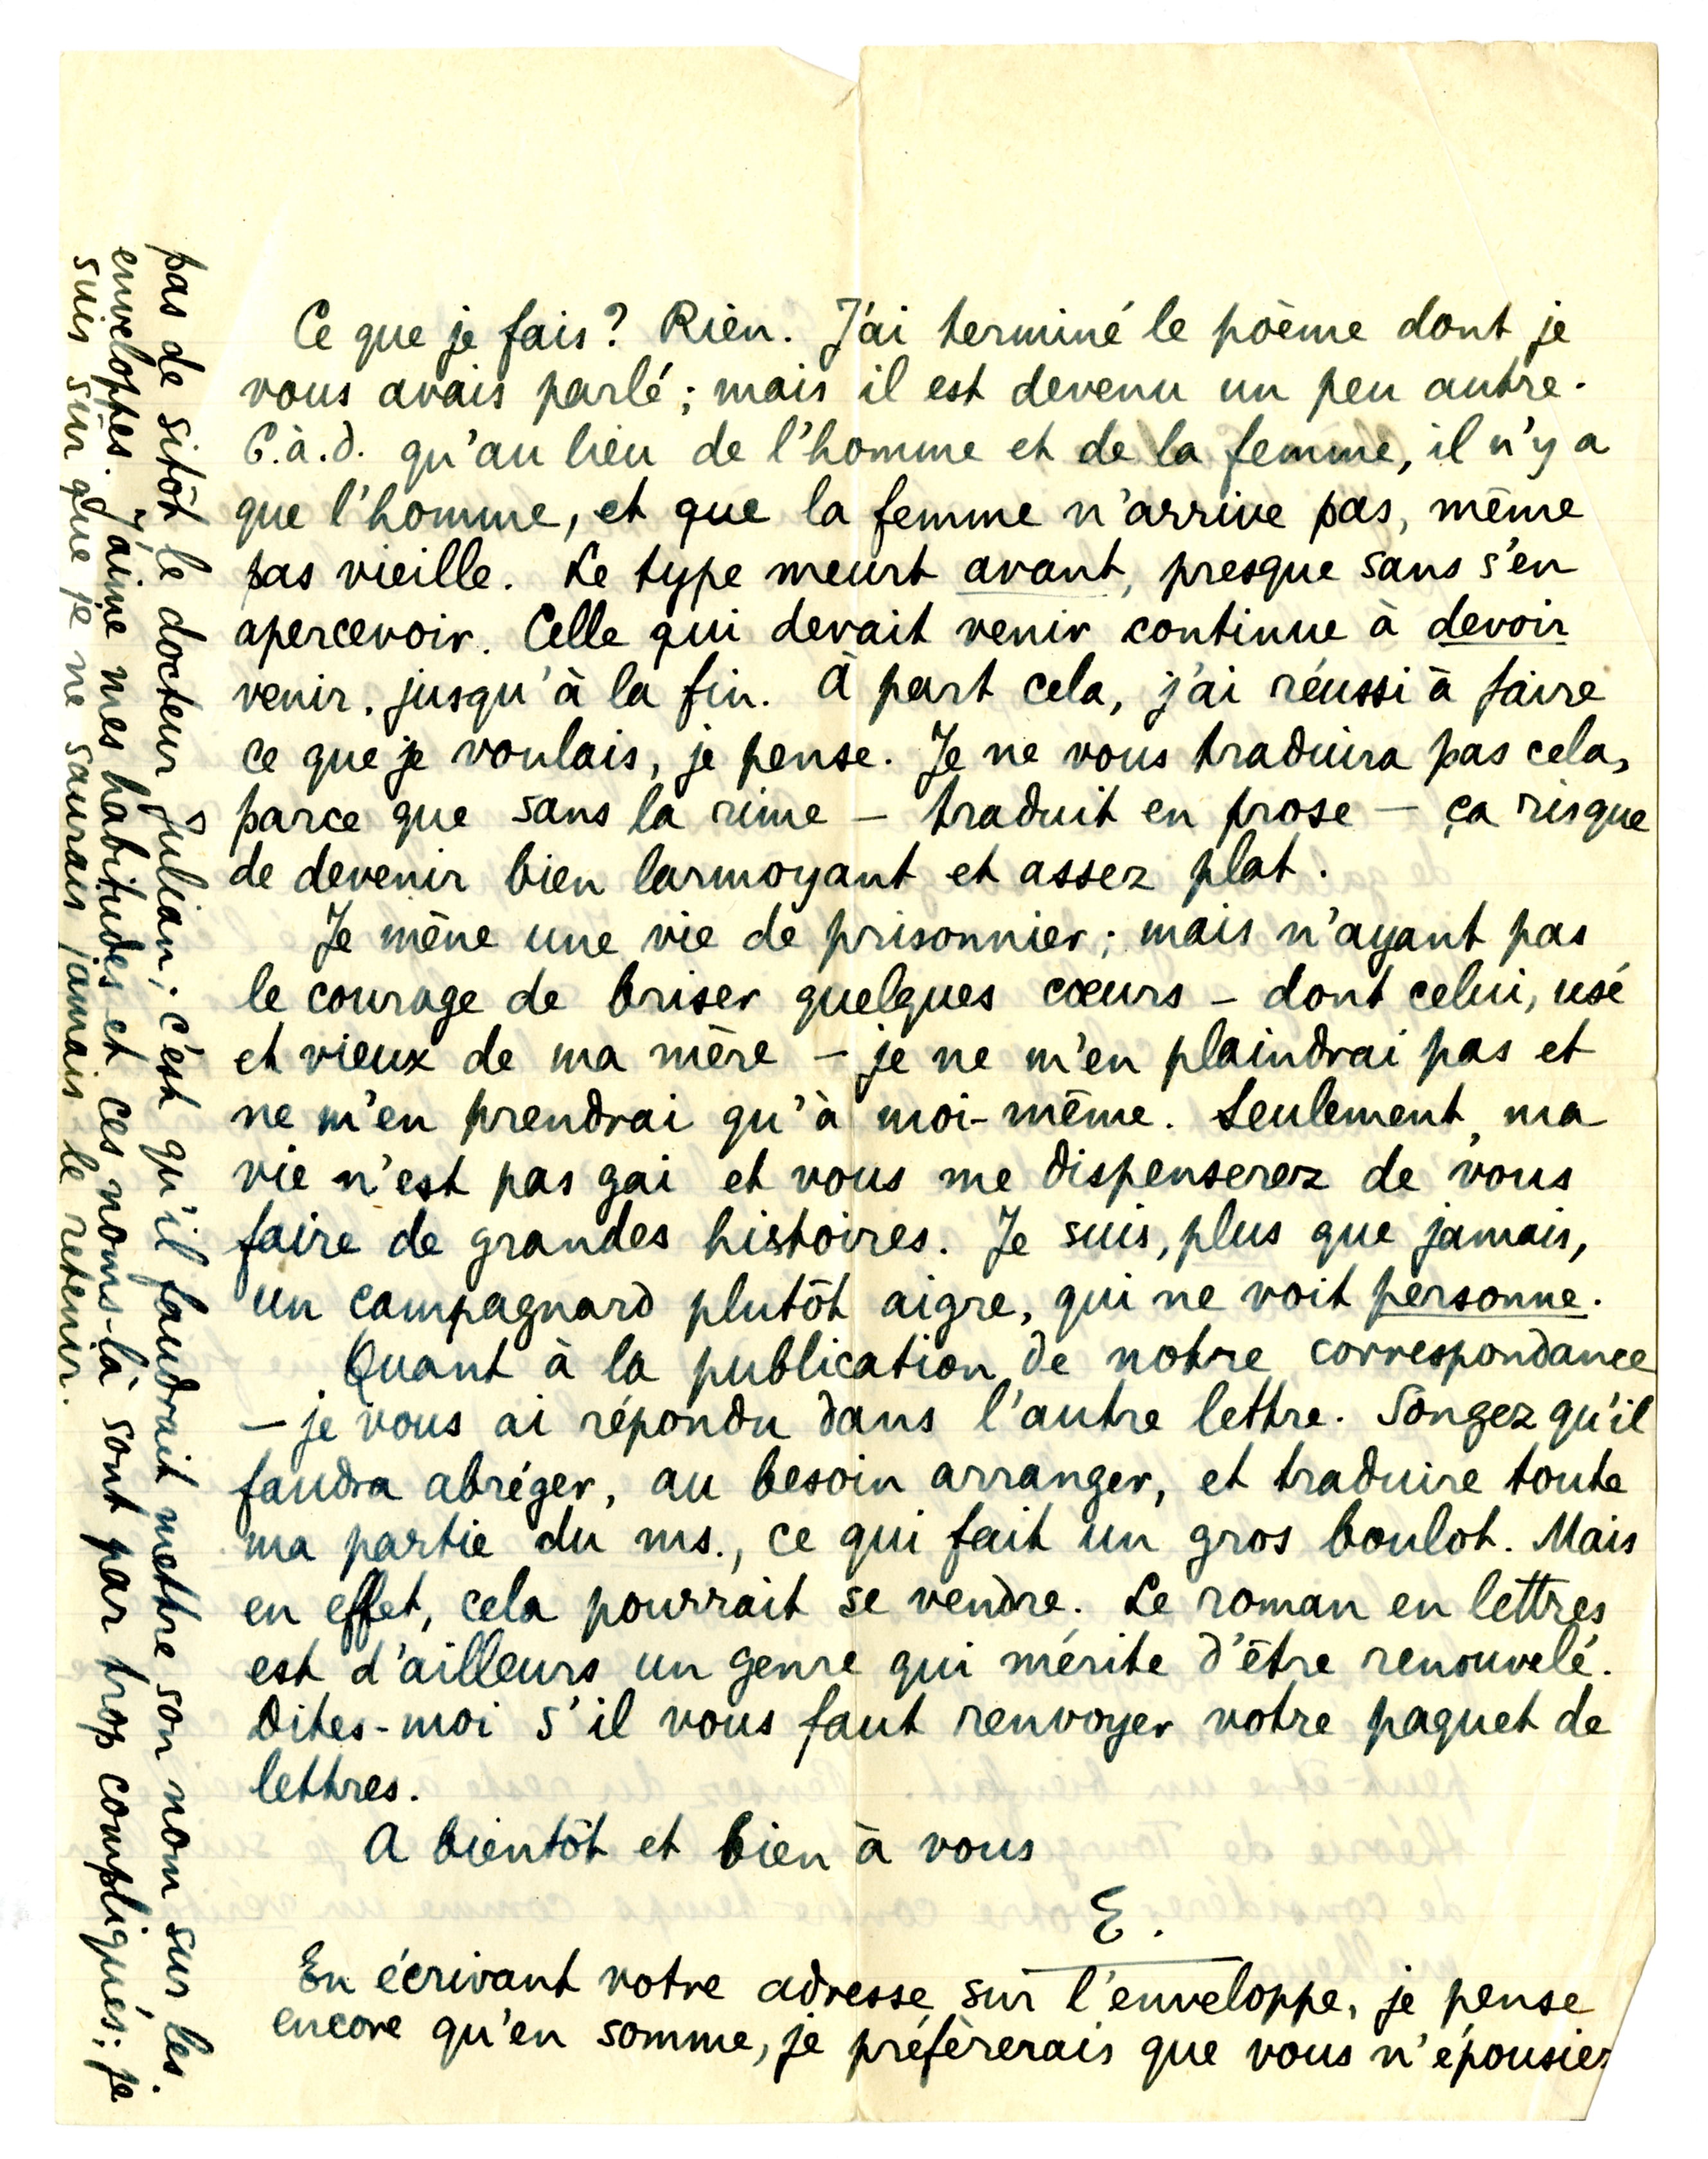 Ce que je fais? Rien. J'ai terminé le poème dont je
vous avais parlé; mais il est devenu un peu autre.
C.à.d. qu'au lieu de l'homme et de la femme, il n'y a
que l'homme, et que la femme n'arrive pas, même
pas vieille. Le type meurt avant, presque sans s'en
apercevoir. Celle qui devait venir continue à devoir
venir, jusqu'à la fin. À part cela, j'ai réussi à faire
ce que je voulais, je pense. Je ne vous traduira pas cela,
parce que sans la rime – traduit en prose – ça risque
de devenir bien larmoyant et assez plat.
Je mène une vie de prisonnier; mais n'ayant pas
le courage de briser quelques cœurs – dont celui, usé
et vieux de ma mère – je ne m'en plaindrai pas et
ne m'en prendrai qu'à moi-même. Seulement, ma
vie n'est pas gai et vous me dispenserez de vous
faire de grandes histoires. Je suis, plus que jamais,
un campagnard plutôt aigre, qui ne voit personne.
Quant à la publication de notre correspondance
– je vous ai répondu dans l'autre lettre. Songez qu'il
faudra abréger, au besoin arranger, et traduire toute
ma partie du ms., ce qui fait un gros boulot. Mais
en effet, cela pourrait se vendre. Le roman en lettres
est d'ailleurs un genre qui mérite d'être renouvelé.
Dites-moi s'il vous faut renvoyer votre paquet de
lettres.
A bientôt et bien à vous
E.
En écrivant votre adresse sur l'enveloppe, je pense
encore qu'en somme, je préfèrerais que vous n'épousiez
pas de sitôt le docteur Julian; c'est qu'il faudrait mettre son nom sur les
enveloppes. J'aime mes habitudes et ces noms-là sont par trop compliqués; je
suis sûr que je ne saurais jamais le retenir.